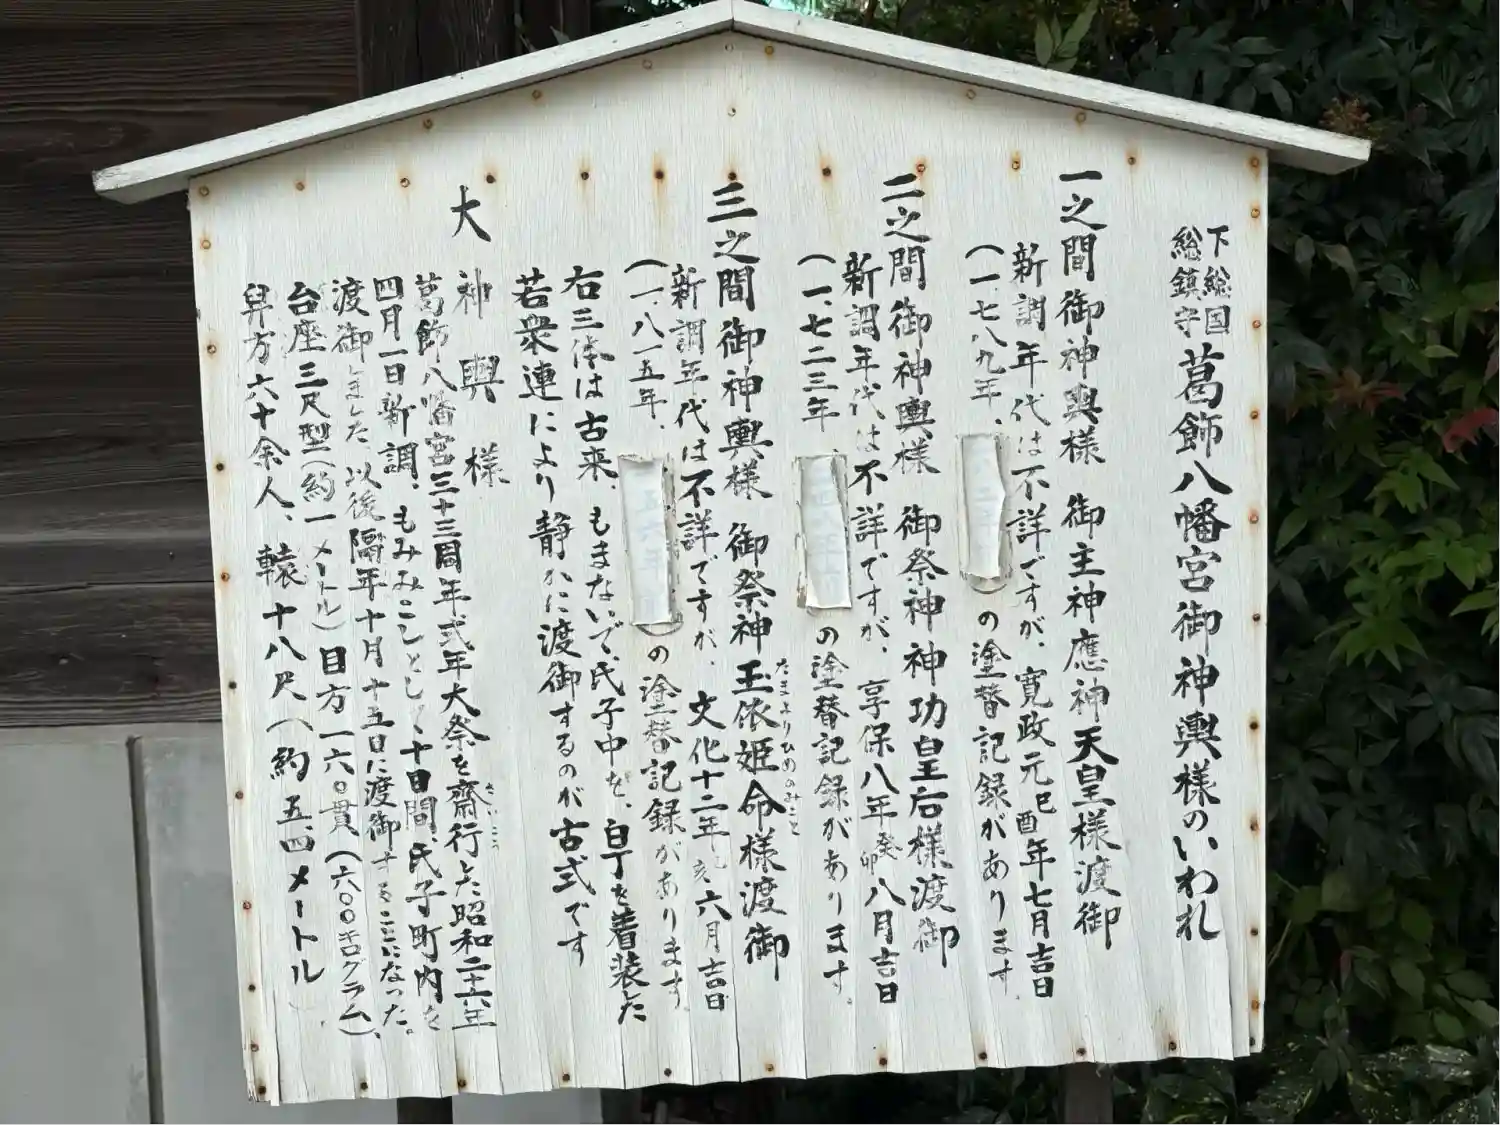 下総国
総鎮守
葛飾八幡宮御神輿様のいわれ
一之間御神輿様 御主神應神天皇様渡御
新調年代は不詳ですが、寛政元己酉年七月吉日
(一、七八九年、
の塗替記録があります。
二之間御神輿様 御祭神神功皇后様渡御
新調年代は不詳ですが、享保八年癸卯八月吉日
(一、七二三年
の塗替記録があります。
三之間御神輿様 御祭神玉依姫命様渡御
たまよりひめのみこと
新調年代は不詳ですが、文化十二年乙亥六月吉日
(一、八一五年、
五六年
)の塗替記録があります。
右三体は古来、もまないで、氏子中を、白丁を着装した
若衆連により静かに渡御するのが古式です
大神輿様
葛飾八幡宮三十三周年式年大祭を齋行した昭和二十六年
さいこう
四月一日新調、もみみこしとして十日間、氏子町内を
渡御しました 以後隔年十月十五日に渡御することになった。
台座三尺型(約一メートル)目方一六〇貫(六〇〇キログラム)、
舁方六十余人、轅十八尺(約五、四メートル)